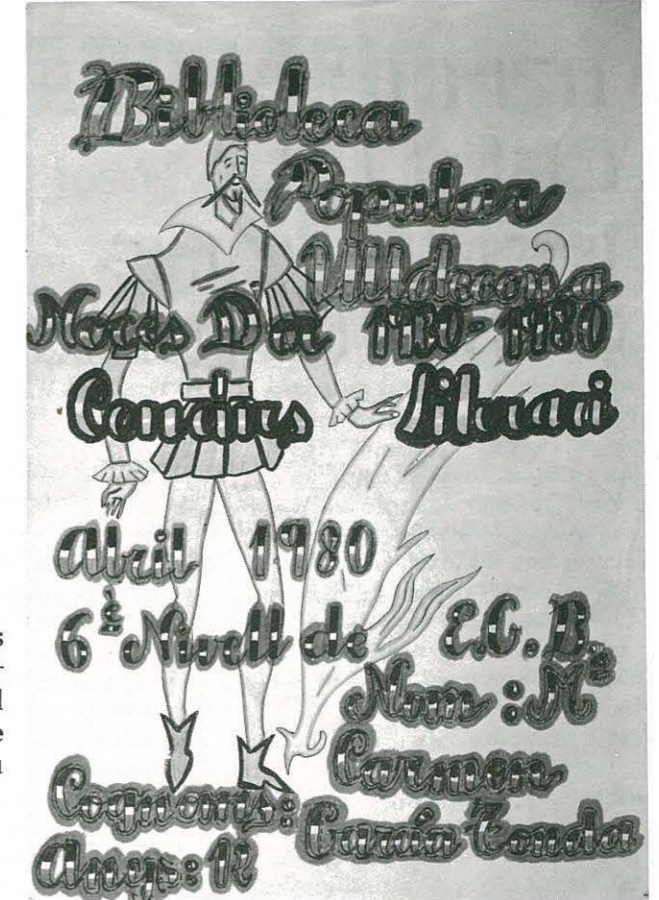 Biblioteca
Popular
Ulldecona
Noces D'or 1930-1980
Concurs Literari
Abril 1980
6è Nivell de E.G.B.
Nom: Mª
Carmen
Cognoms: García Tonda
Anys: 12